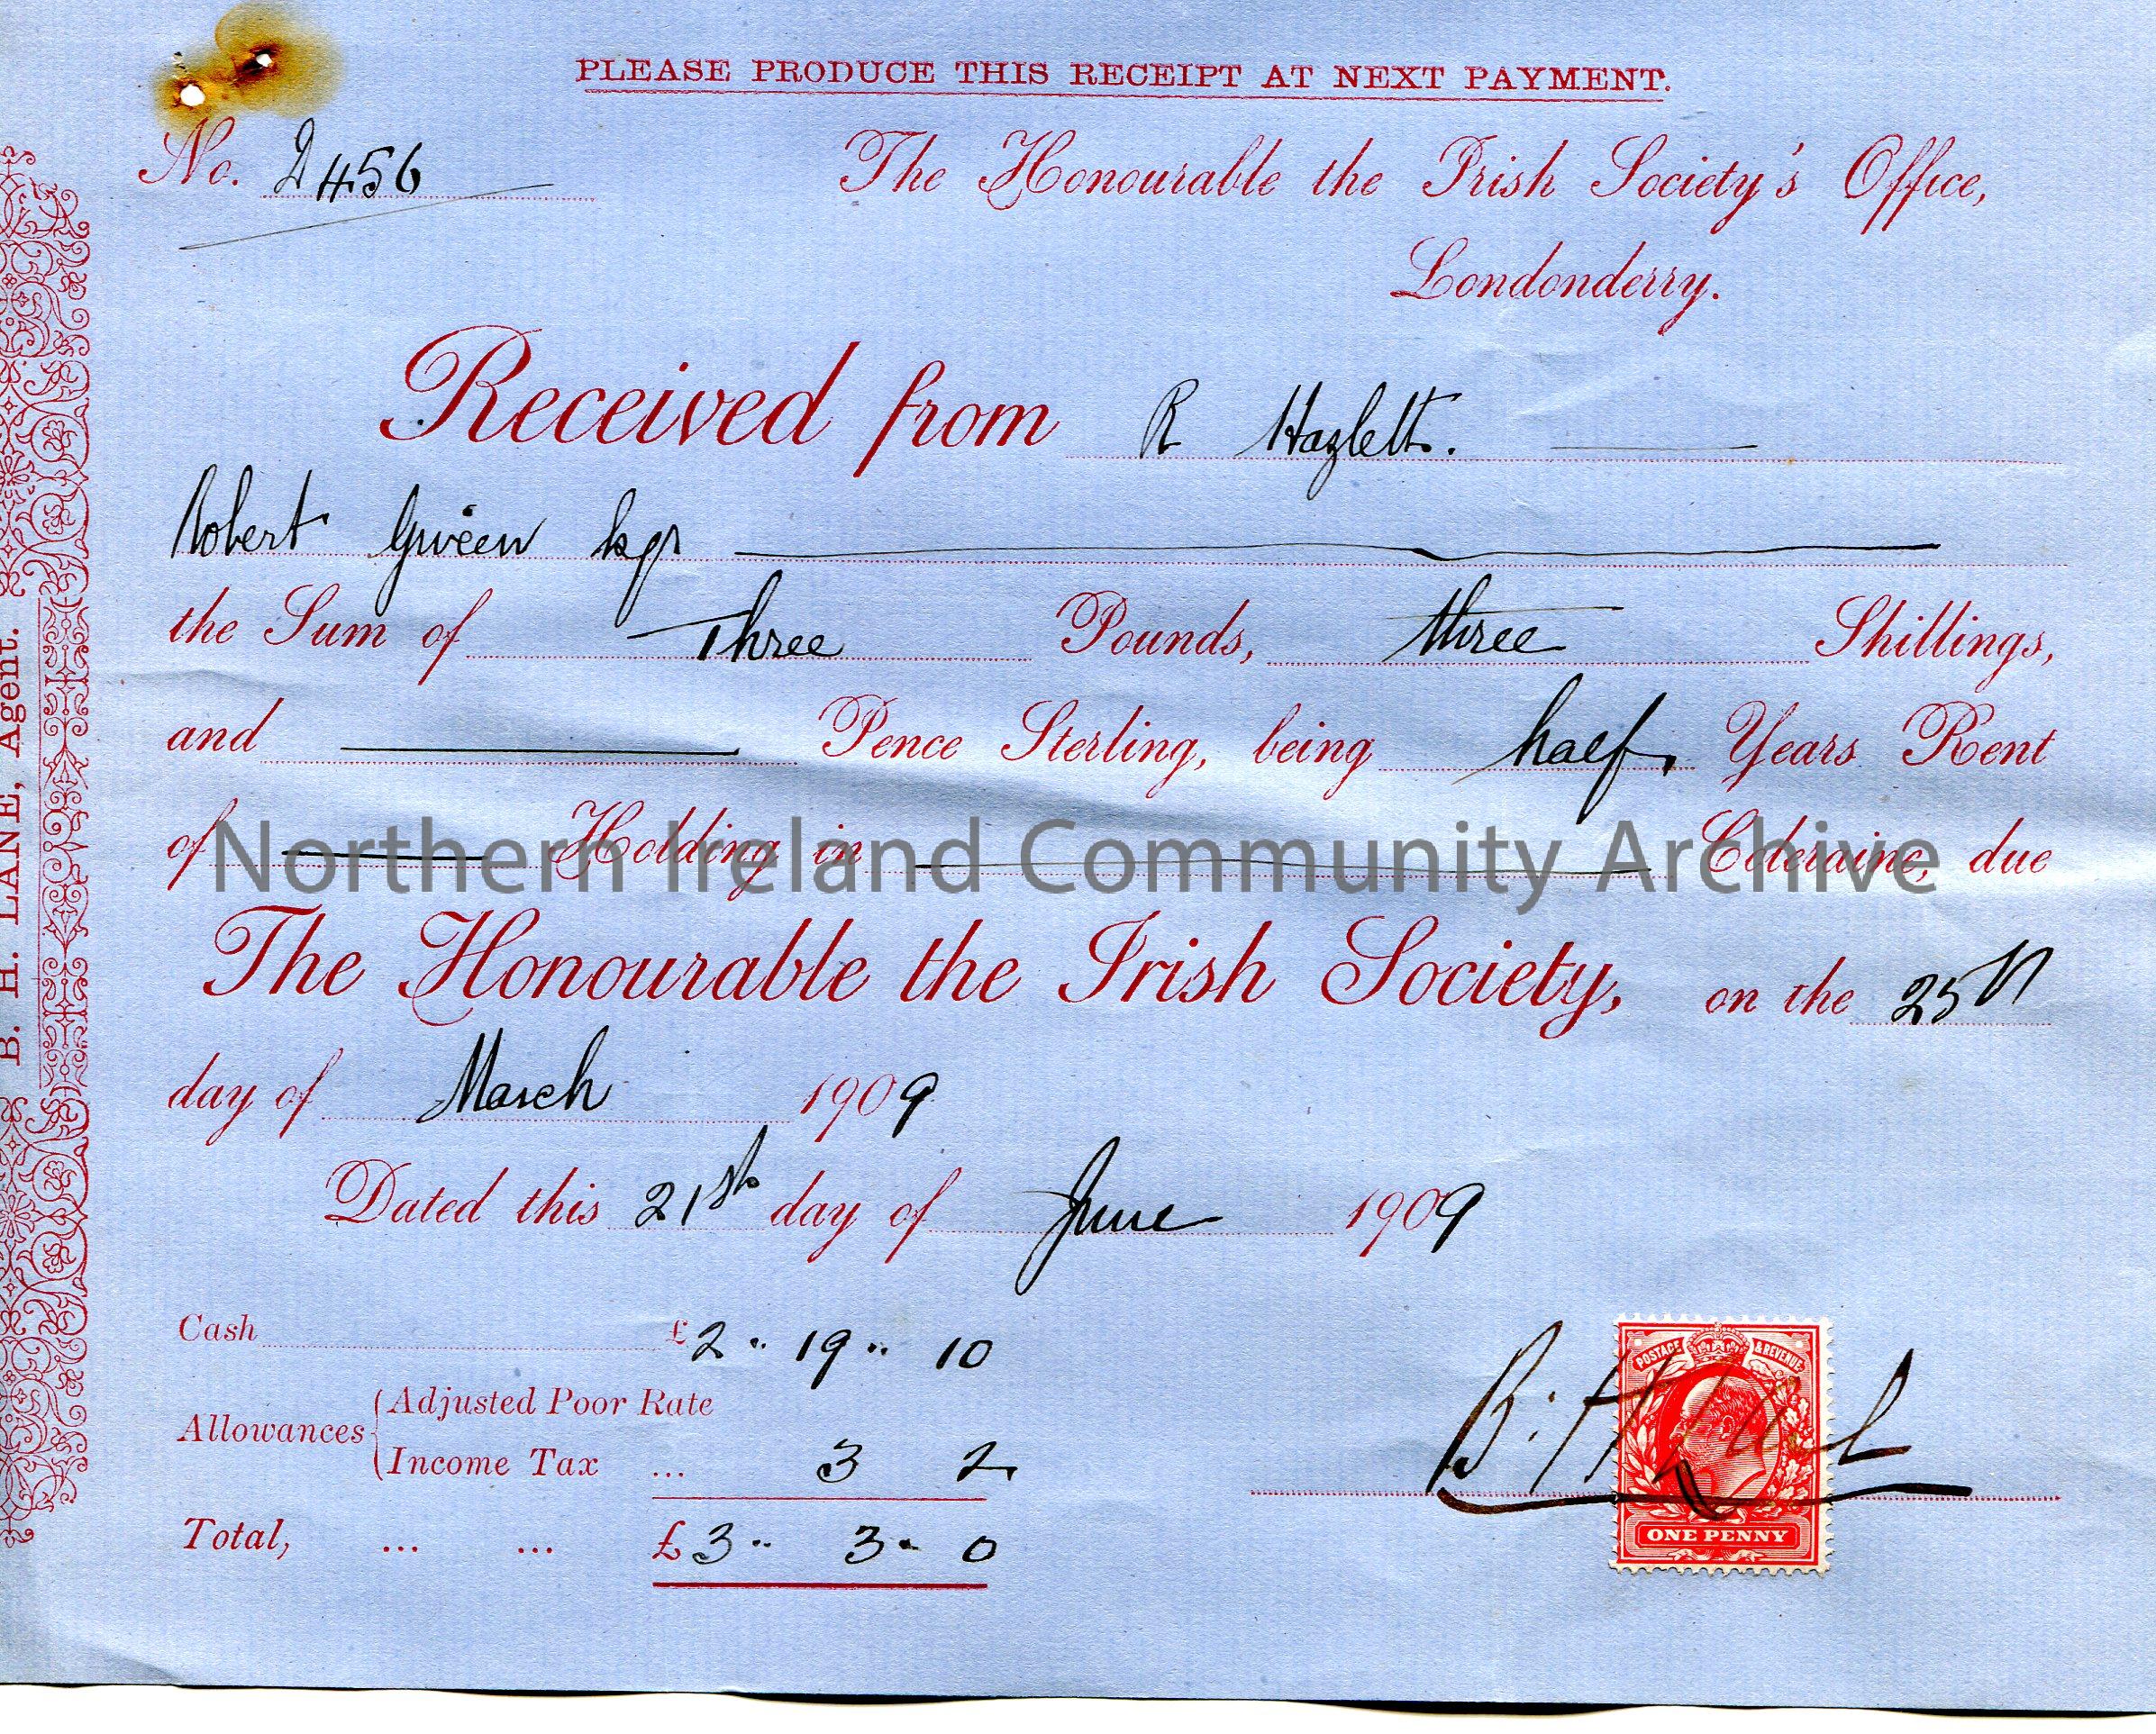 PLEASE PRODUCE THIS RECEIPT AT NEXT PAYMENT.
No. 2456
The Honourable the Irish Society's Office,
Londonderry.
Received from R Hazlett.
Robert Gween
the Sum of Three Pounds, three Shillings,
and Pence Sterling, being half Years Rent
of Holding in Coleraine, due
Northern Ireland Community Archive
The Honourable the Irish Society, on the 25th
day of March 1909
Dated this 21st day of June 1909
Cash £2 .. 19 .. 10
Allowances Adjusted Poor Rate
Income Tax ... 3 2
Total, ... ... £3 .. 3 . 0
B. H. Lane
POSTAGE & REVENUE
ONE PENNY
B. H. LANE, Agent.